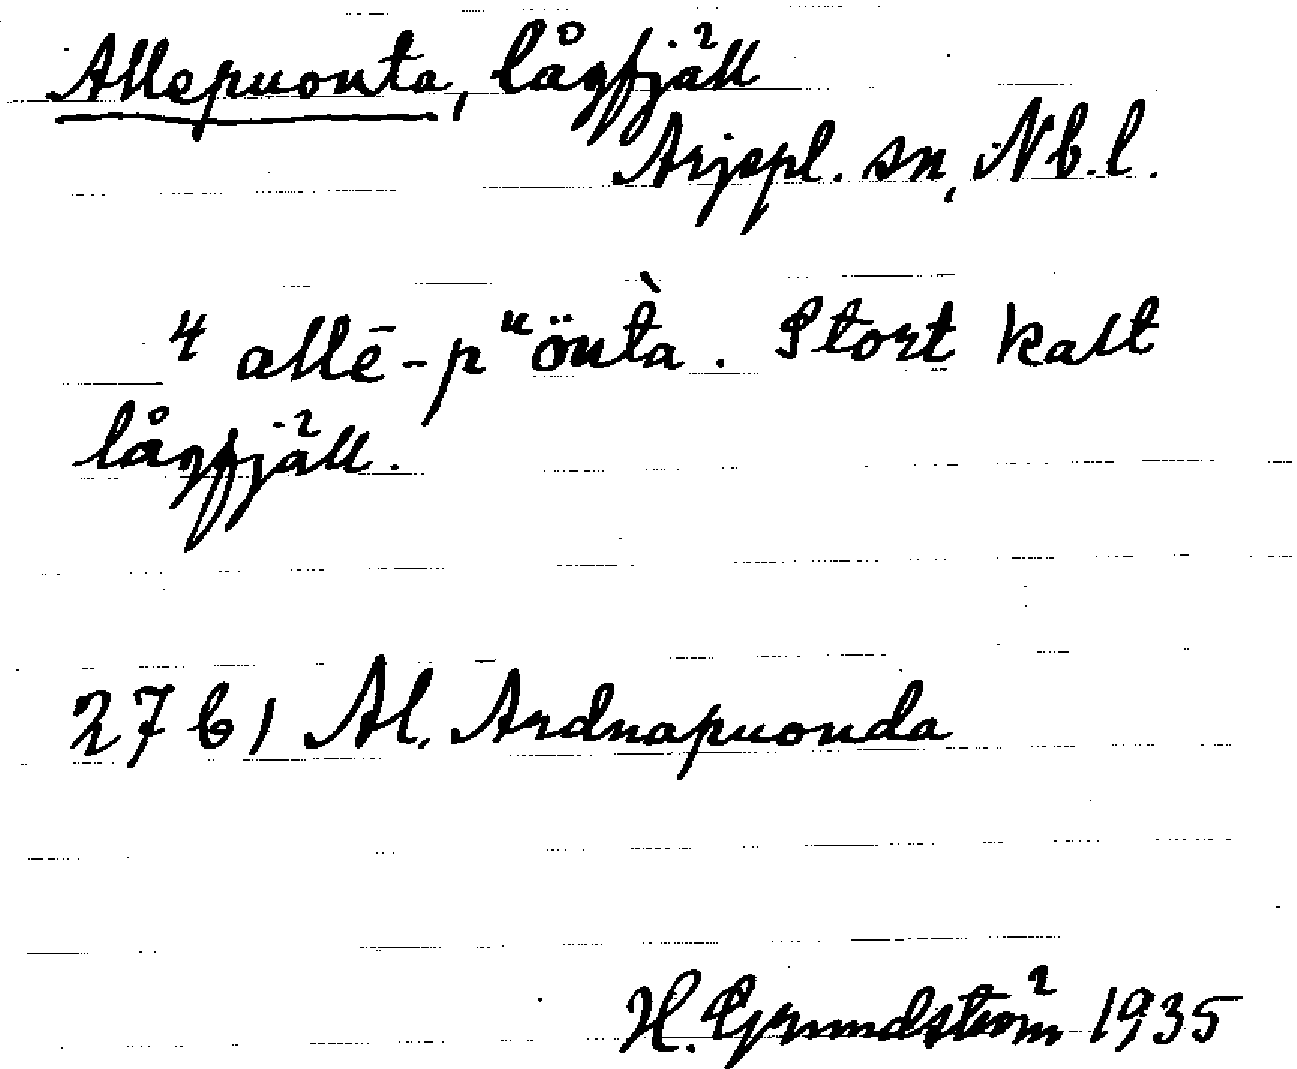 Allepuonta, lågfjäll
Arjepl. sn, Nb. l.
4 allē-pᵘöntà. Stort kalt
lågfjäll.
27 b) Al. Ardnapuonda
H. Grundström 1935